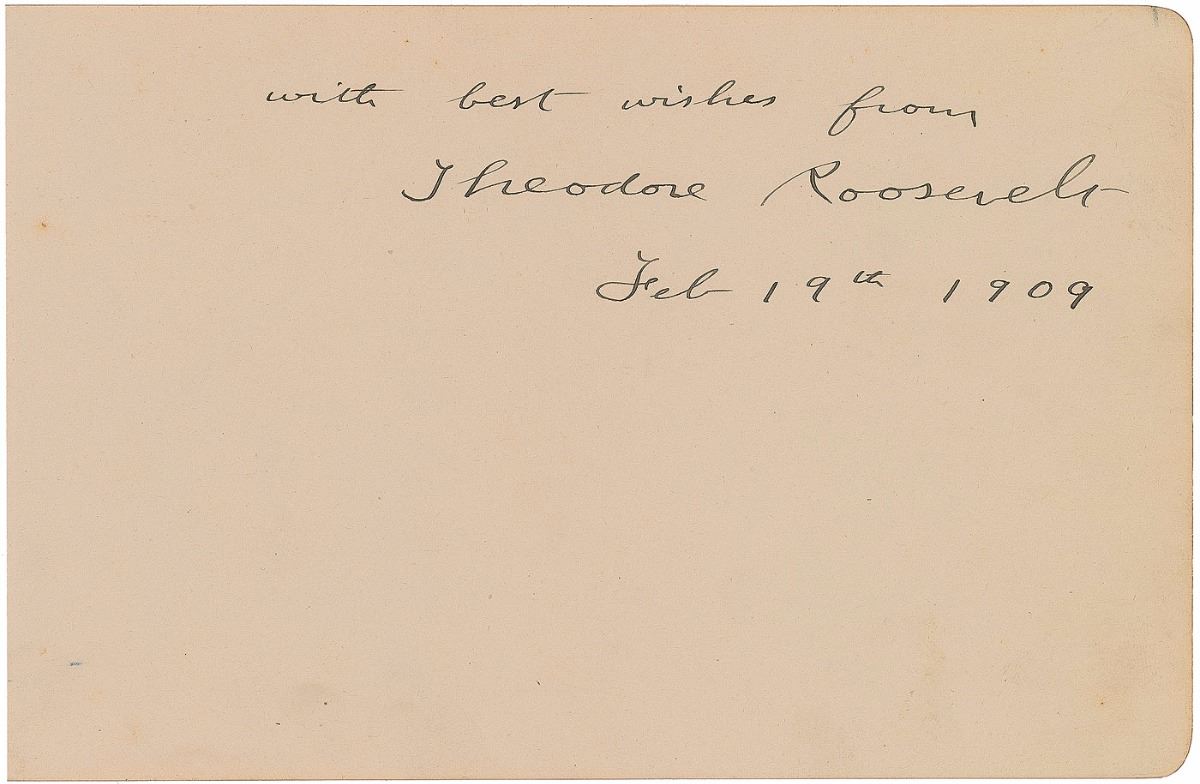 with best wishes from
Theodore Roosevelt
Feb 19th 1909